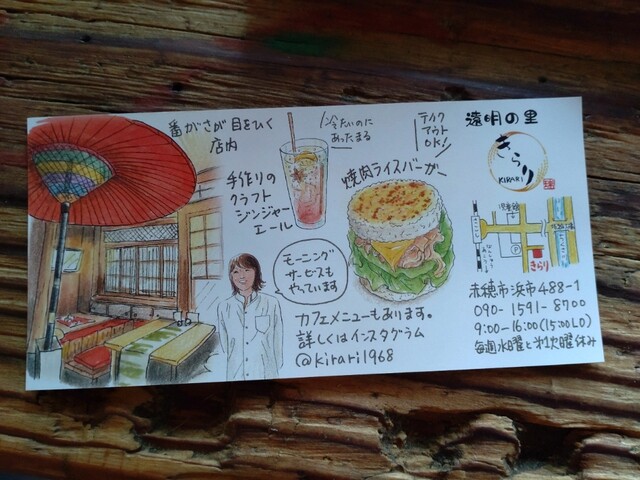 番がさが目をひく
店内
手作りの
クラフト
ジンジャー
エール
冷たいのに
あったまる
テイク
アウト
OK!
焼肉ライスバーガー
モーニング
サービスも
やっています
カフェメニューもあります。
詳しくはインスタグラム
@kirari1968
遠明の里
きらり
KIRARI
P
きらり
赤穂市浜市488-1
090-1591-8700
9:00-16:00(15:00LO)
毎週水曜と第1火曜休み